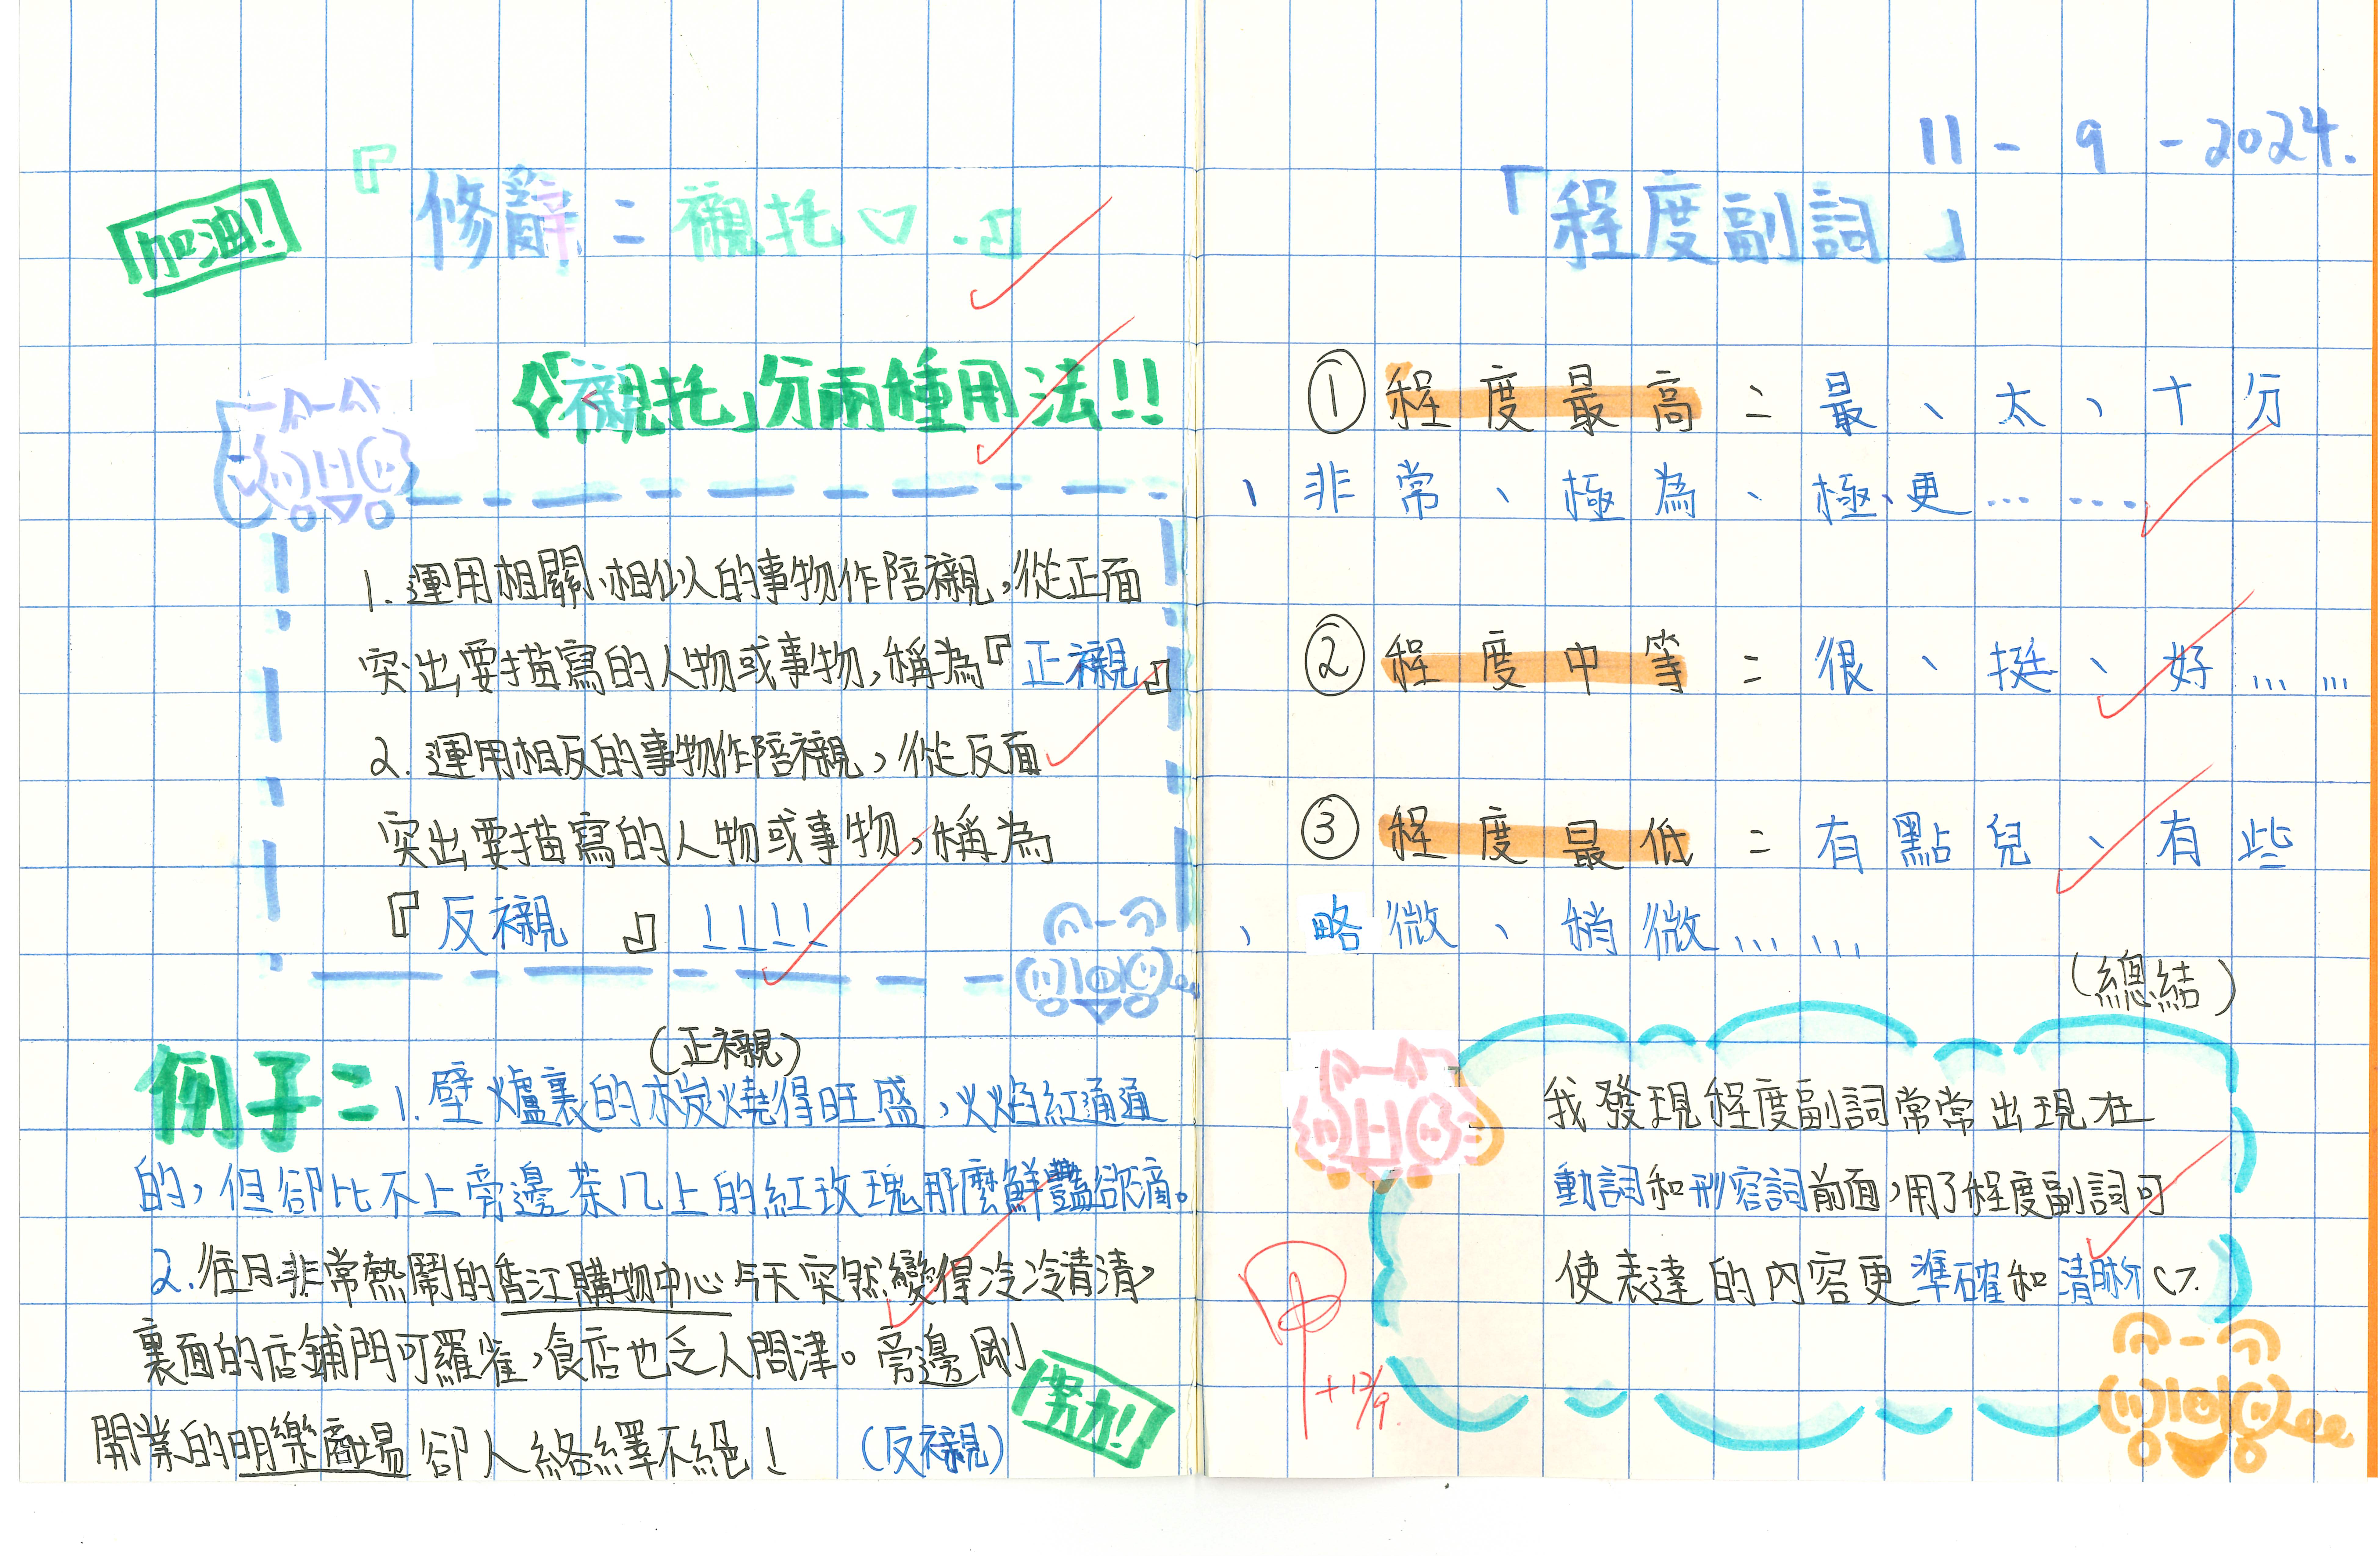 加油!
『修辭=襯托♡.』
《「襯托」分兩種用法!!
1.運用相關、相似的事物作陪襯,從正面
突出要描寫的人物或事物,稱為『正襯』
2.運用相反的事物作陪襯,從反面
突出要描寫的人物或事物,稱為
『反襯』!!!!
(正襯)
例子=1.壁爐裏的木炭燒得旺盛,火焰紅通通
的,但卻比不上旁邊茶几上的紅玫瑰那麼鮮豔欲滴。
2.往日非常熱鬧的香江購物中心今天突然變得冷冷清清,
裏面的店鋪門可羅雀,食店也乏人問津。旁邊剛
開業的明樂商場卻人絡繹不絕! (反襯)
努力!
11-9-2024.
「程度副詞」
①程度最高=最、太、十分
、非常、極為、極、更……
②程度中等=很、挺、好……
③程度最低=有點兒、有些
、略微、稍微……
(總結)
我發現程度副詞常常出現在
動詞和形容詞前面,用了程度副詞可
使表達的內容更準確和清晰♡.
甲+ 12/9